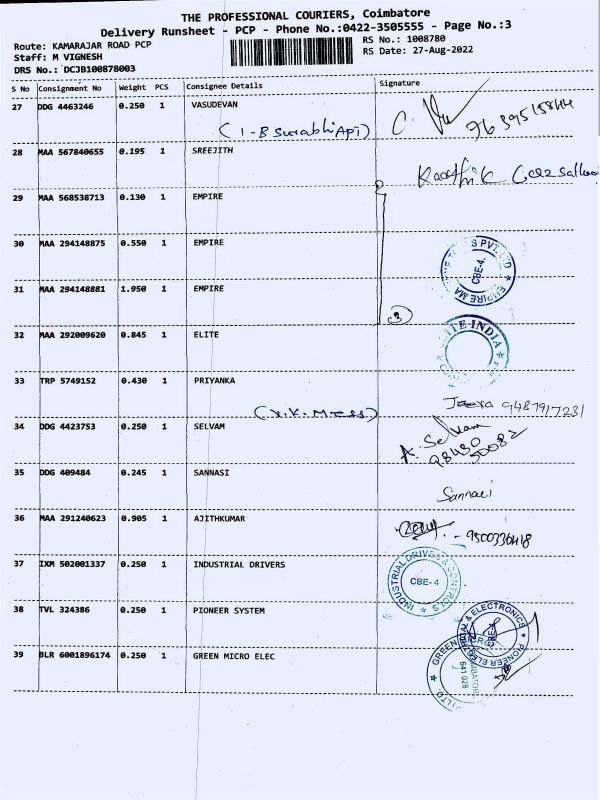 THE PROFESSIONAL COURIERS, Coimbatore
Delivery Runsheet - PCP - Phone No.:0422-3505555 - Page No.:3
Route: KAMARAJAR ROAD PCP
RS No.: 1008780
Staff: M VIGNESH
RS Date: 27-Aug-2022
DRS No.: DCJB100878003
S No Consignment No Weight PCS Consignee Details Signature
27 DDG 4463246 0.250 1 VASUDEVAN
28 MAA 567840655 0.195 1 SREEJITH
Karthik
29 MAA 568538713 0.130 1 EMPIRE
30 MAA 294148875 0.550 1 EMPIRE
CBE-4.
31 MAA 294148881 1.950 1 EMPIRE
3
32 MAA 292009620 0.845 1 ELITE
ELITE INDIA
33 TRP 5749152 0.430 1 PRIYANKA
Jeeva 9487917231
(V.K. Mess)
34 DDG 4423753 0.250 1 SELVAM
A. Selvam
98430
50082
35 DDG 409484 0.245 1 SANNASI
Sannasi
36 MAA 291240623 0.905 1 AJITHKUMAR
37 IXM 502001337 0.250 1 INDUSTRIAL DRIVERS
INDUSTRIAL DRIVES & CONTROLS
CBE-4
38 TVL 324386 0.250 1 PIONEER SYSTEM
39 BLR 6001896174 0.250 1 GREEN MICRO ELEC
641 028